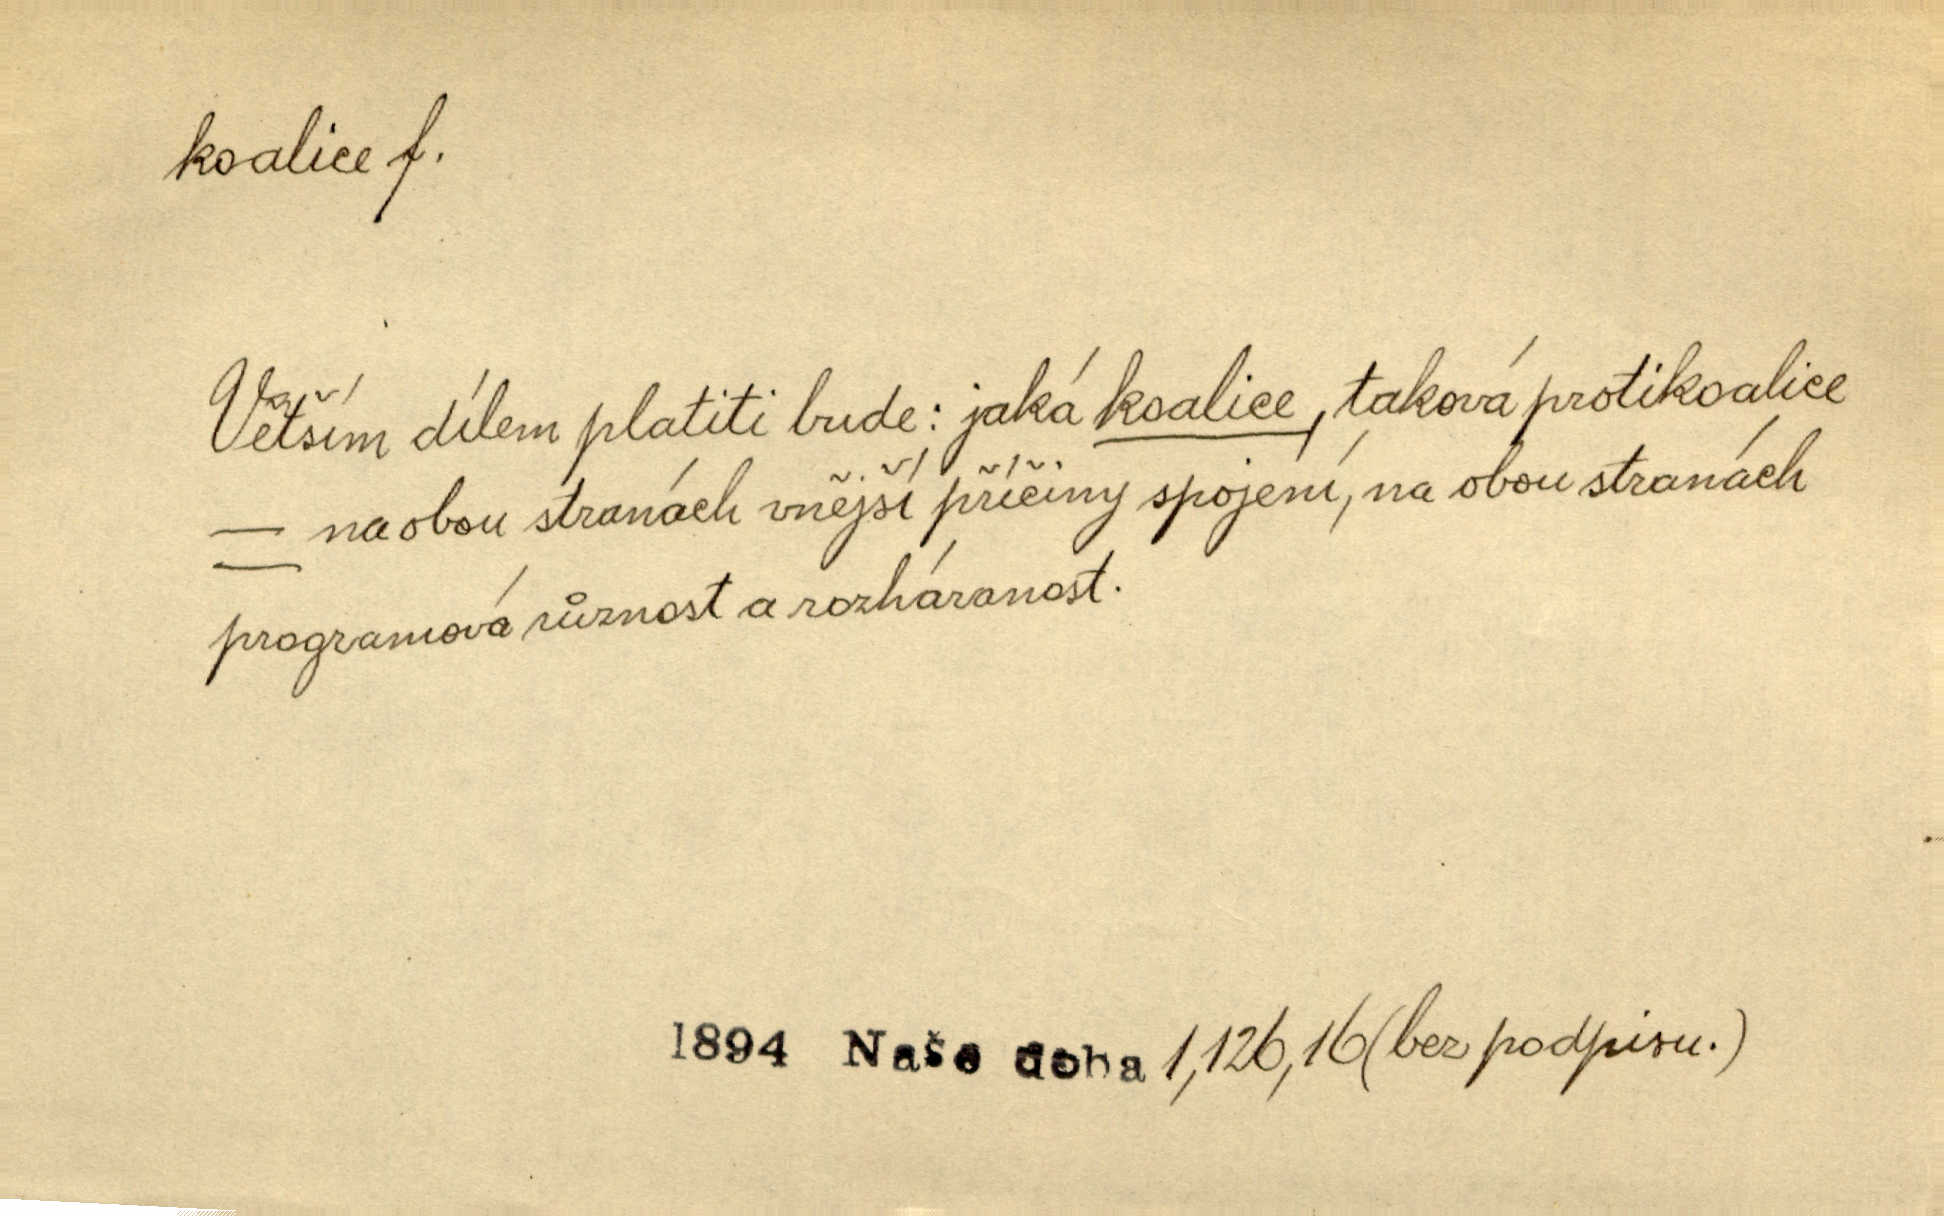 koalice f.
Větším dílem platiti bude: jaká koalice, taková protikoalice
— na obou stranách vnější příčiny spojení, na obou stranách
programová různost a rozháranost.
1894 Naše doba 1,126,16 (bez podpisu.)